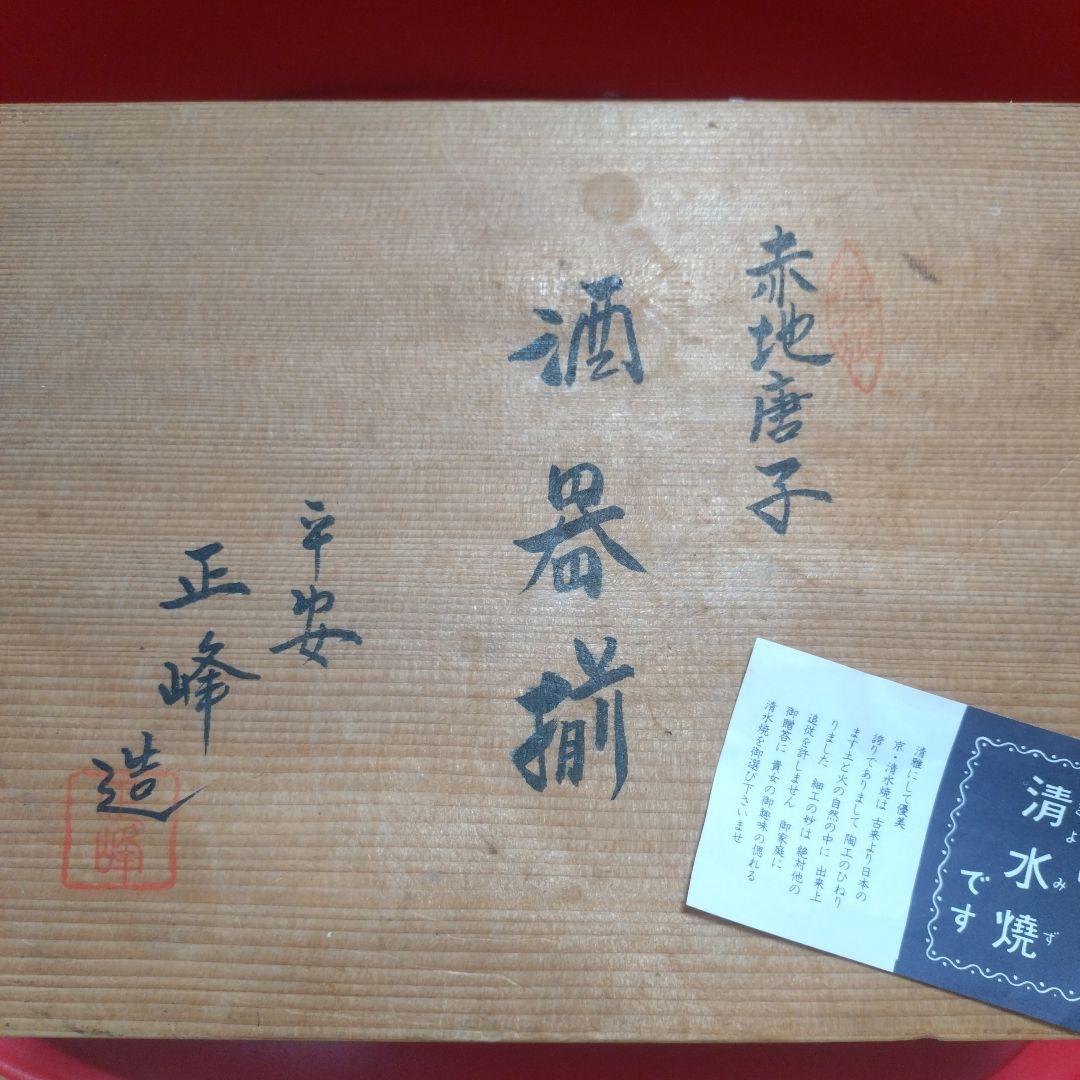 赤地唐子
酒器揃
平安
正峰
造
峰
清雅にして優美
京・清水焼は 古来より日本の
誇りでありまして 陶工のひねり
ます土と火の自然の中に 出来上
りました 細工の妙は 絶対他の
追従を許しません 御家庭に
御贈答に 貴女の御趣味の偲れる
清水焼を御選び下さいませ
清水燒
よみず
です